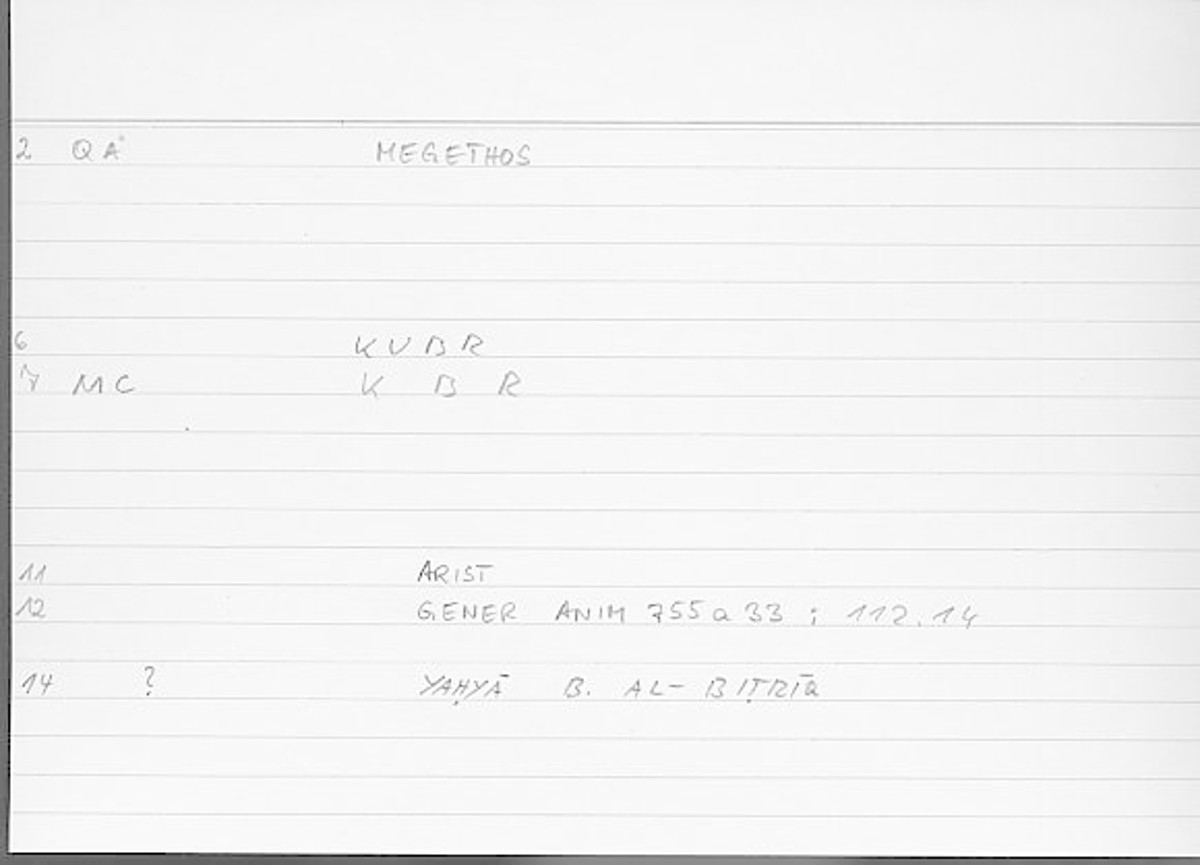 2 QA° MEGETHOS
6 KUBR
7 MC K B R
11 ARIST
12 GENER ANIM 755a33 ; 112.14
14 ? YAḤYĀ B. AL-BIṬRĪQ